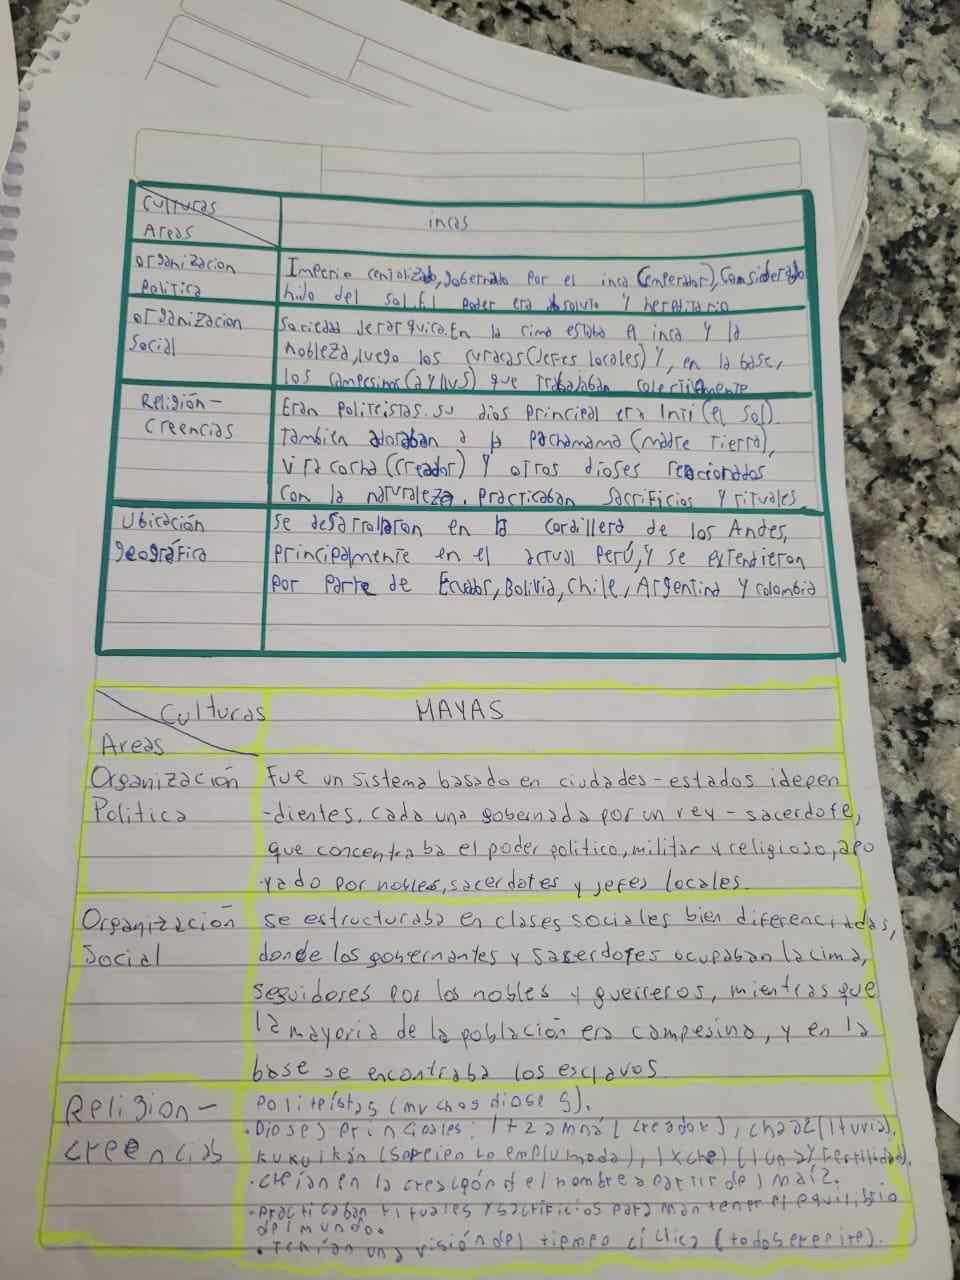 Culturas
Areas
incas
organizacion
Politica
Imperio centolizado, gobernado por el inca (emperador), Considerado
hijo del sol. El poder era absoluto y hereditario
organizacion
Social
Sociedad Jerarquica. En la cima estaba el inca y la
nobleza, luego los curacas (Jefes locales) y, en la base,
los campesinos (ayllus) que trabajaban colectivamente
Religión-
Creencias
Eran Politeistas. su dios principal era Inti (el sol).
tambien adoraban a la pachamama (madre tierra),
viracocha (creador) y otros dioses relacionados
con la naturaleza. Practicaban Sacrificios y rituales
Ubicación
geográfica
se desarrollaron en la cordillera de los Andes,
principalmente en el actual Perú, y se extendieron
por parte de Ecuador, Bolivia, Chile, Argentina y colombia
Culturas
Areas
MAYAS
Organización
Politica
Fue un sistema basado en ciudades-estados idepen
-dientes, cada una gobernada por un rey-sacerdote,
que concentraba el poder politico, militar y religioso, apo
-yado por nobles, sacerdotes y jefes locales.
Organización
Social
se estructuraba en clases sociales bien diferenciadas,
donde los gobernantes y sacerdotes ocupaban la cima,
seguidores por los nobles y guerreros, mientras que
la mayoria de la población era campesina, y en la
base se encontraba los esclavos.
Religion-
creencias
Politeistas (muchos dioses).
• Dioses principales: Itzamná (creador), chaac (lluvia),
kukulkán (serpiento emplumada), Ixchel (luna y fertilidad).
• creian en la creación del hombre a partir del maiz.
• practicaban rituales y sacrificios para mantener el equilibrio
del mundo.
• Tenian una visión del tiempo cíclica (todo se repite).